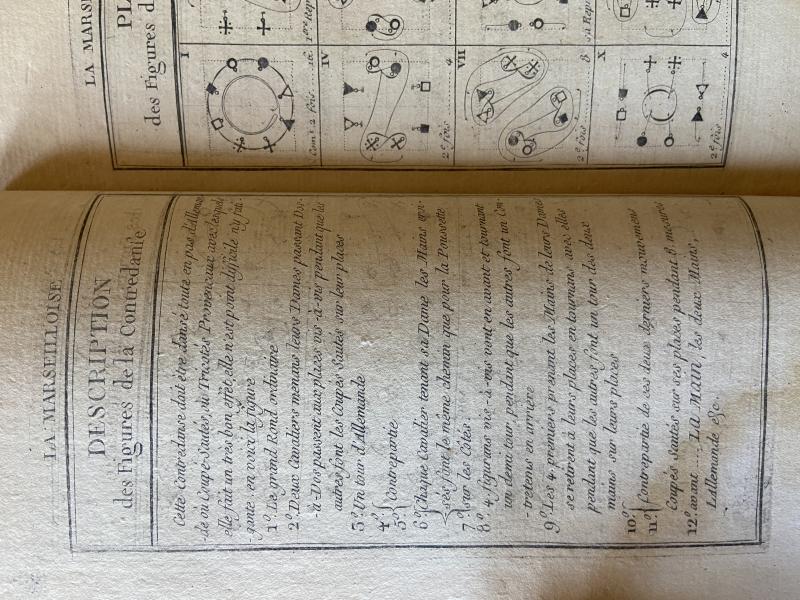 LA MARSEILLOISE
DESCRIPTION
des Figures de la Contredanse
Cette Contredanse doit être dansé toute en pas d'Alleman
-de ou Coupé-Sautés, où Tricotés Provencaux avec lesquels
elle fait un tres bon effet, elle n'est point dificile ny fati-
gante. en voici la figure
1.º Le grand Rond ordinaire
2.º Deux Cavaliers menans leurs Dames passant Dos-
-à-Dos passent aux places vis-à-vis pendant que les
autres font les Coupés Sautés sur leur places
3.º Un tour d'Allemande
4.º
5.º Contrepartie
6.º Chaque Cavalier tenant sa Dame les Mains
-ses font le même chemin que pour la Poussette
7.º sur les Cotés.
8.º 4 figurans vis-à-vis vont en avant et tournant
un demi tour, pendant que les autres font un
tretems en arriere
9.º Les 4. premiers prenant les Mains de leurs Dames
se retirent à leurs places en tournans avec elles
pendant que les autres font un tour des deux
mains sur leurs places
10.º
11.º Contrepartie de ces deux derniers mouvemens
Coupés Sautés sur ses places pendant 8. mesures
12.º avant .... LA MAIN, les deux Mains,
L'allemande &c.
LA MARSEI
PL
des Figures d
I
Cont. 2 fois
IV
2.e fois
4
VII
2.e fois
8
X
2.e fois
4